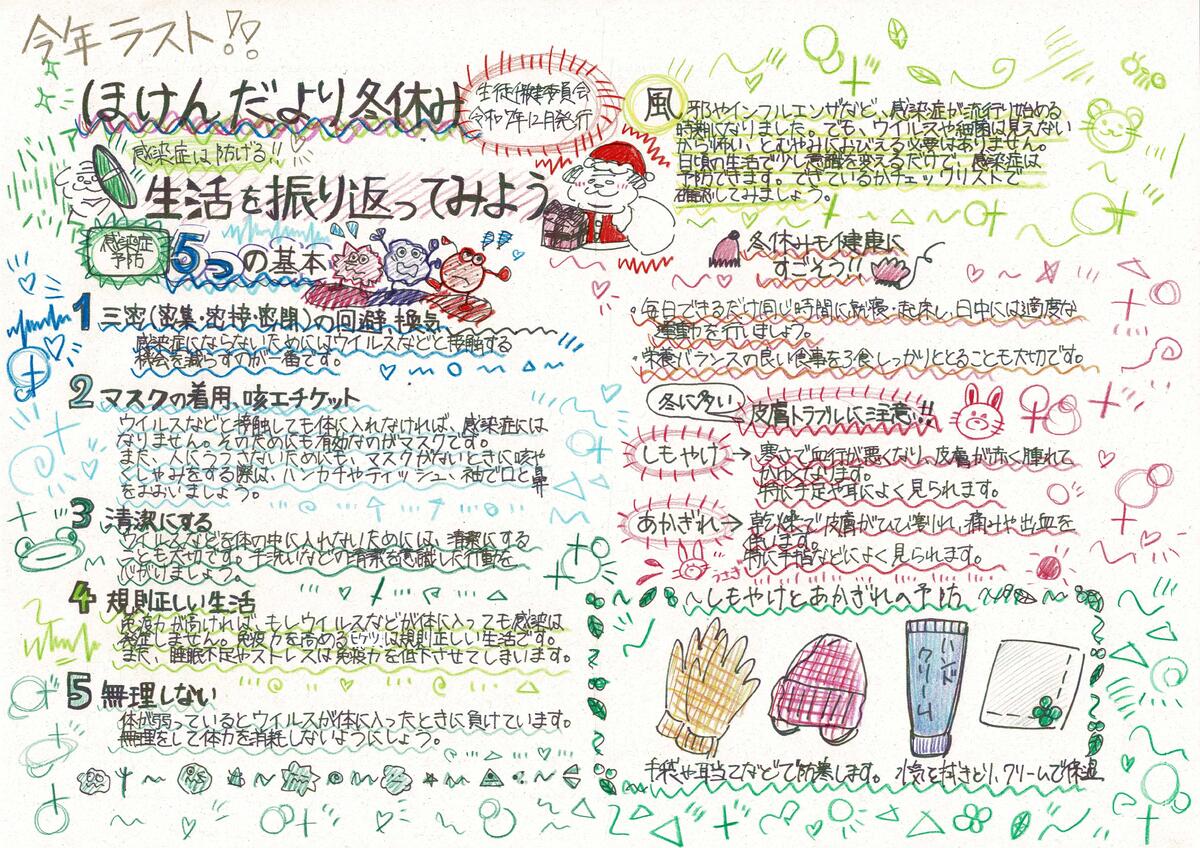 今年ラスト!!
ほけんだより冬休み
生徒保健委員会
令和7年12月発行
感染症は防げる!!
生活を振り返ってみよう
感染症
予防
5つの基本
1 三密(密集・密接・密閉)の回避 換気
感染症にならないためにはウイルスなどと接触する
機会を減らすのが一番です。
2 マスクの着用、咳エチケット
ウイルスなどと接触しても体に入れなければ、感染症には
なりません。そのためにも有効なのがマスクです。
また、人にうつさないためにも、マスクがないときに咳や
くしゃみをする際は、ハンカチやティッシュ、袖で口と鼻
をおおいましょう。
3 清潔にする
ウイルスなどを体の中に入れないためには、清潔にする
ことも大切です。手洗いなどの清潔を意識した行動を
心がけましょう。
4 規則正しい生活
免疫力が高ければ、もしウイルスなどが体に入っても感染は
発症しません。免疫力を高めるヒケツは規則正しい生活です。
また、睡眠不足やストレスは免疫力を低下させてしまいます。
5 無理しない
体が弱っているとウイルスが体に入ったときに負けています。
無理をして体力を消耗しないようにしよう。
風邪やインフルエンザなど、感染症が流行り始める
時期になりました。でも、ウイルスや細菌は見えない
から怖い、とむやみにおびえる必要はありません。
日頃の生活で少し意識を変えるだけで、感染症は
予防できます。できているかチェックリストで
確認してみましょう。
冬休みも健康に
すごそう!!
・毎日できるだけ同じ時間に就寝・起床し、日中には適度な
運動を行いましょう。
・栄養バランスの良い食事を3食しっかりととることも大切です。
冬に多い
皮膚トラブルに注意!!
しもやけ→寒さで血行が悪くなり、皮膚が赤く腫れて
かゆくなります。
特に手足や耳によく見られます。
あかぎれ→乾燥で皮膚がひび割れ、痛みや出血を
伴います。
特に手指などによく見られます。
うさぎ
〜しもやけとあかぎれの予防〜
ハンド
クリーム
手袋や耳当てなどで防寒します。 水気を拭きとり、クリームで保湿